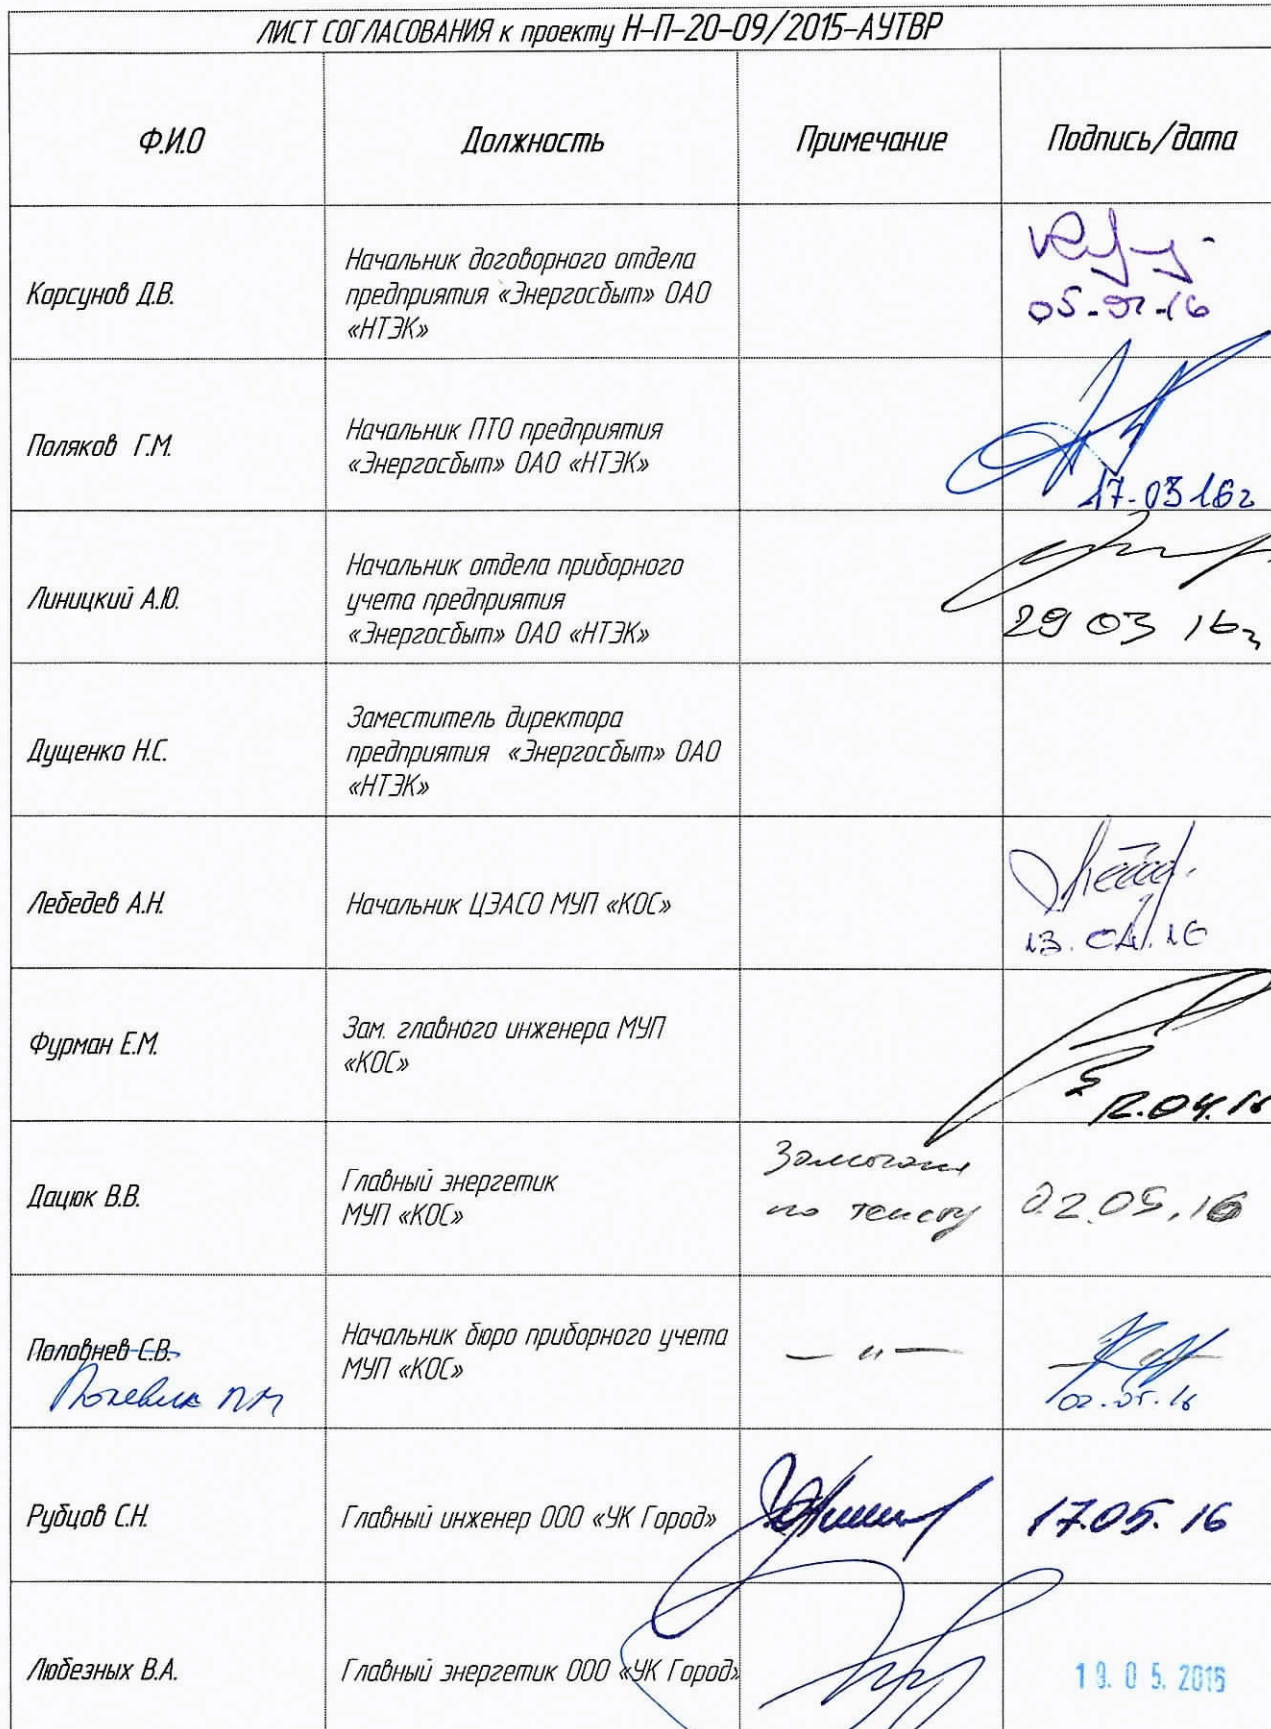 ЛИСТ СОГЛАСОВАНИЯ к проекту Н-П-20-09/2015-АУТВР
Ф.И.О Должность Примечание Подпись/дата
Корсунов Д.В.
Начальник договорного отдела
предприятия «Энергосбыт» ОАО
«НТЭК»
Поляков Г.М.
Начальник ПТО предприятия
«Энергосбыт» ОАО «НТЭК»
17-03 16г
Линицкий А.Ю.
Начальник отдела приборного
учета предприятия
«Энергосбыт» ОАО «НТЭК»
29 03 16г
Дущенко Н.С.
Заместитель директора
предприятия «Энергосбыт» ОАО
«НТЭК»
Лебедев А.Н.
Начальник ЦЭАСО МУП «КОС»
13.04.16
Фурман Е.М.
Зам. главного инженера МУП
«КОС»
12.04.16
Дацюк В.В.
Главный энергетик
МУП «КОС»
по тексту
02.05.16
Половнев С.В.
Начальник бюро приборного учета
МУП «КОС»
— и —
02.05.16
Рубцов С.Н.
Главный инженер ООО «УК Город»
17.05.16
Любезных В.А.
Главный энергетик ООО «УК Город»
19.05.2016